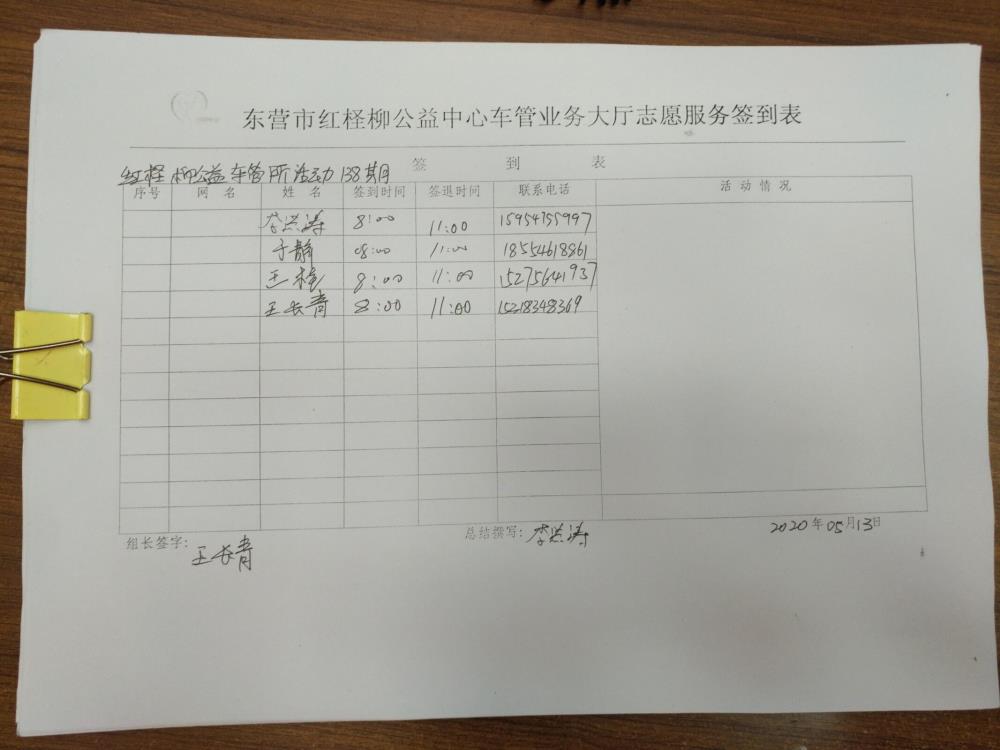 东营市红柽柳公益中心车管业务大厅志愿服务签到表
签 到 表
红柽柳公益车管所活动138期
序号 网 名 姓 名 签到时间 签退时间 联系电话 活 动 情 况
李兴涛 8:00 11:00 15954755997
于静 08:00 11:00 18554618861
王 8:00 11:00 15275641937
王长青 8:00 11:00 15318348369
组长签字: 王长青 总结撰写: 李兴涛 2020年05月13日